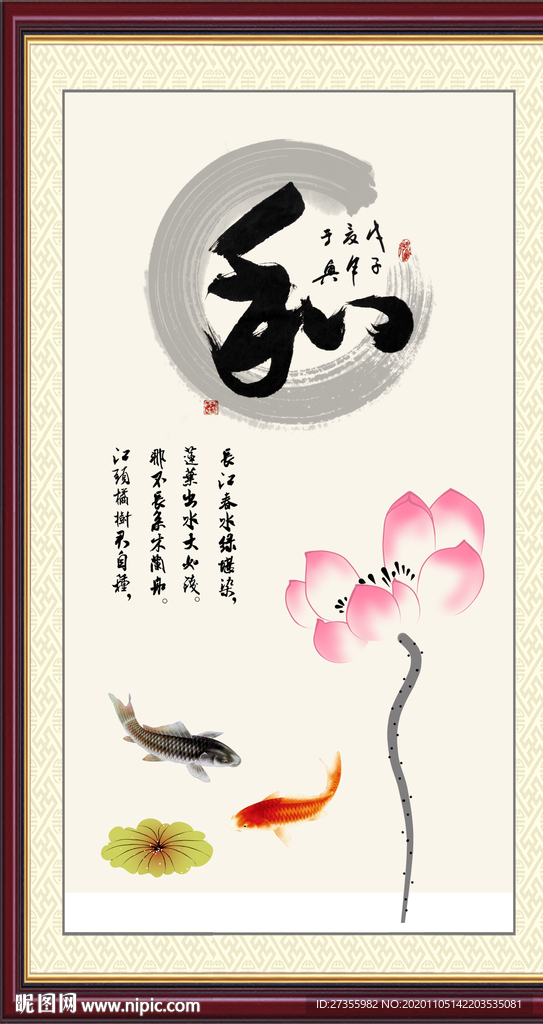 和
戊子
夏年
于奥
長江春水绿堪染，
蓮葉出水大如淺。
江頭橘樹君自種，
那不長系木蘭舟。
昵图网 www.nipic.com
ID:27355982 NO:20201105142203535081